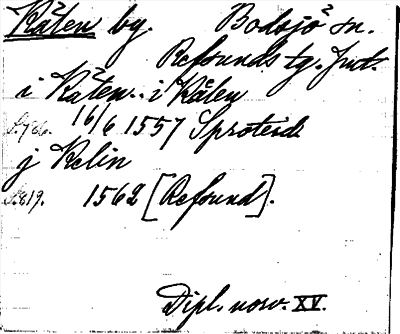 Kälen by. Bodsjö sn.
Refsunds tg. Jmtl.
i Käten. i Kälen
S.786. 16/6 1557 Sproteid
j Kelin
S.819. 1562 [Refsund].
Dipl. norv. XV.